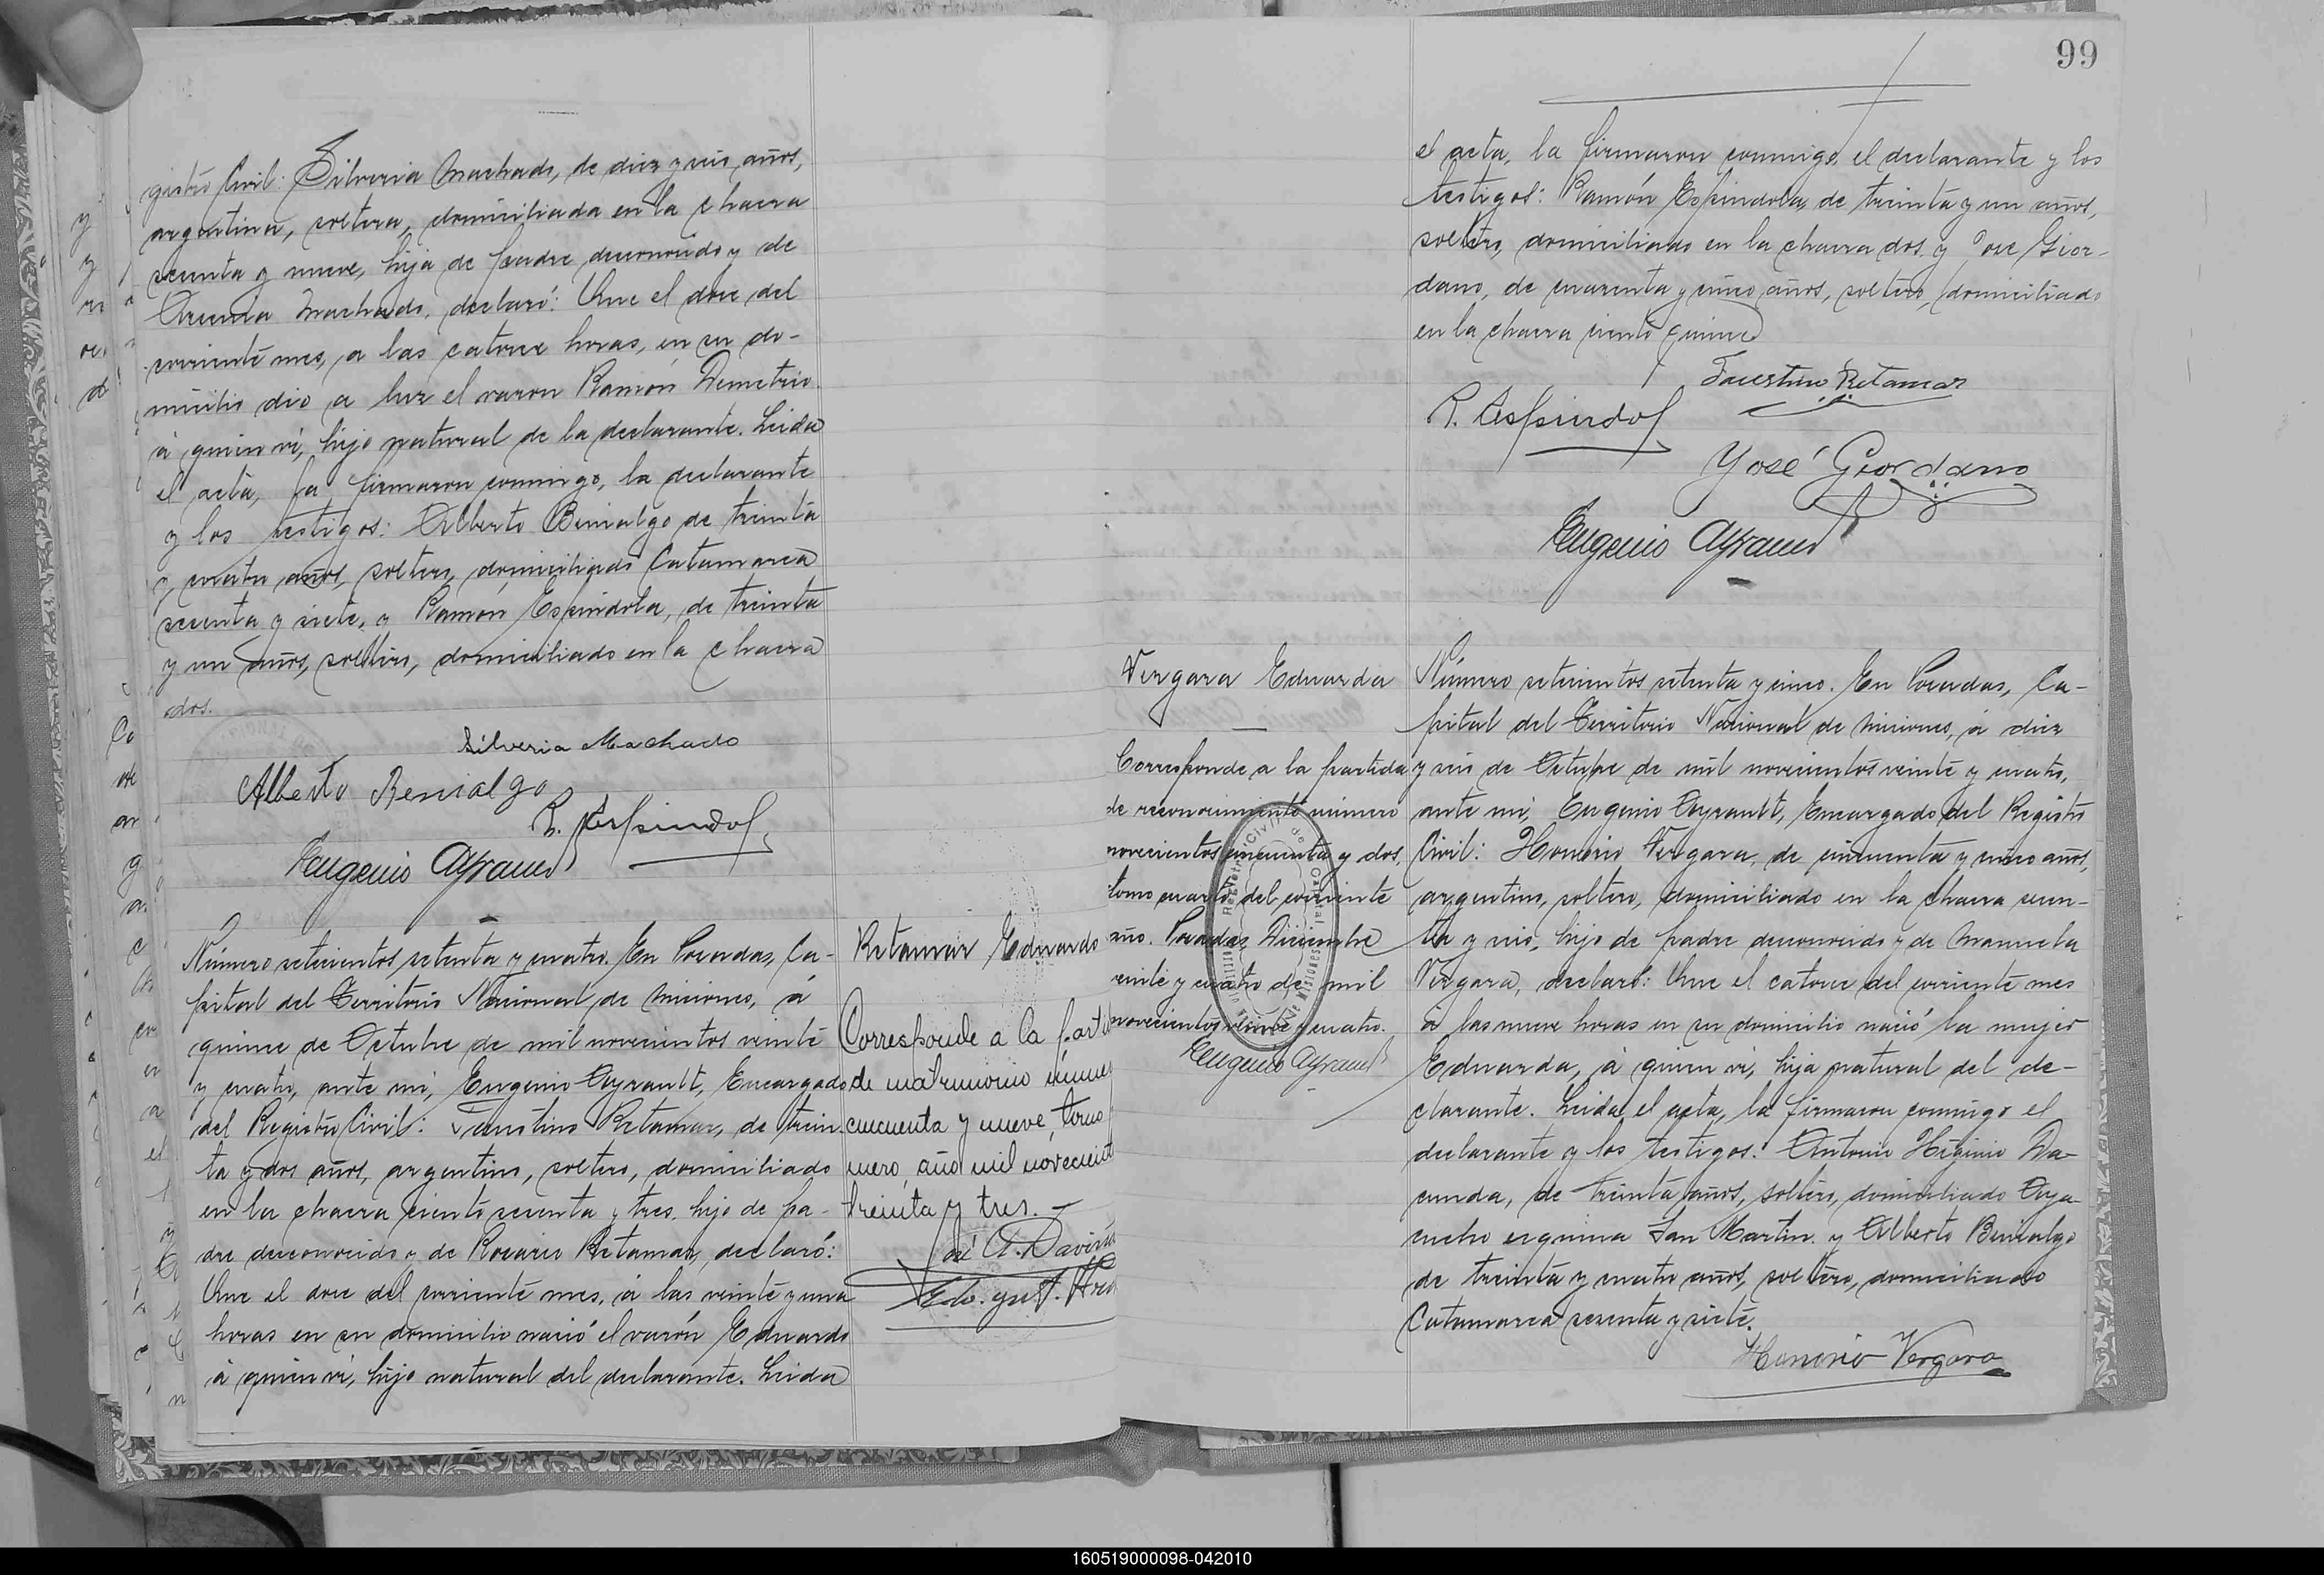 gistro Civil: Silveria Machado, de diez y seis años,
argentina, soltera, domiciliada en la chacra
sesenta y nueve, hija de padre desconocido y de
Machado, declaró: Que el doce del
corriente mes, a las catorce horas, en su do-
micilio dio a luz el varon Ramón Demetrio
á quien ví, hijo natural de la declarante. Leida
el acta, la firmaron conmigo, la declarante
y los testigos: Alberto Benialgo de treinta
y cuatro años, soltero, domiciliado Catamarca
sesenta y siete, y Ramón Espindola, de treinta
y un años, soltero, domiciliado en la chacra
dos.
Silveria Machado
Alberto Benialgo
R. Espindol
Eugenio Ayrault
Número setecientos setenta y cuatro. En Posadas, Ca-
pital del Territorio Nacional de Misiones, á
quince de Octubre de mil novecientos veinte
y cuatro, ante mi, Eugenio Ayrault, Encargado
del Registro Civil: Faustino Retamar, de trein-
ta y dos años, argentino, soltero, domiciliado
en la chacra ciento sesenta y tres, hijo de pa-
dre desconocido y de Rosario Retamar, declaró:
Que el doce del corriente mes, á las veinte y una
horas en su domicilio nació el varón Eduardo
á quien ví, hijo natural del declarante. Leida
Retamar Eduardo
Corresponde a la parti
de matrimonio núme
cincuenta y nueve, tomo
mero, año mil novecient
treinta y tres.-
José A. David
99
el acta, la firmaron conmigo, el declarante y los
testigos: Ramón Espindola, de treinta y un años,
soltero, domiciliado en la chacra dos, y José Gior-
dano, de cuarenta y cinco años, soltero, domiciliado
en la chacra ciento quince
Faustino Retamar
R. Espindol
José Giordano
Eugenio Ayrault
Vergara Eduarda
Corresponde a la partida
de reconocimiento número
novecientos cincuenta y dos,
tomo cuarto del corriente
año. Posadas, Diciembre
veinte y cuatro de mil
novecientos veinte y cuatro.
Eugenio Ayrault
Número setecientos setenta y cinco. En Posadas, Ca-
pital del Territorio Nacional de Misiones, á diez
y seis de Octubre de mil novecientos veinte y cuatro,
ante mi, Eugenio Ayrault, Encargado del Registro
Civil: Honorio Vergara, de cincuenta y cinco años,
argentino, soltero, domiciliado en la chacra sesen-
ta y seis, hijo de padre desconocido y de Manuela
Vergara, declaró: Que el catorce del corriente mes
á las nueve horas en su domicilio nació la mujer
Eduarda, á quien ví, hija natural del de-
clarante. Leida el acta, la firmaron conmigo el
declarante y los testigos: Antonio Higinio Da-
cunda, de treinta años, soltero, domiciliado Aya-
cucho esquina San Martin y Alberto Benialgo
de treinta y cuatro años, soltero, domiciliado
Catamarca sesenta y siete.
Honorio Vergara
160519000098-042010